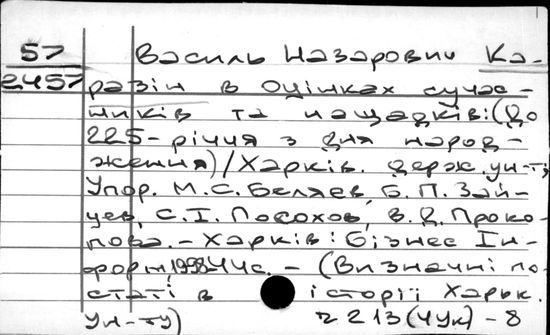 57 Василь Назарович Ка-
2457 разін в оцінках сучас-
ників та нащадків: (До
225-річчя з дня народ-
ження) / Харків. держ. ун-т;
Упор. М.С. Беляев, Б.П. Зай-
цев, С.І. Посохов, В.Д. Проко-
пова. - Харків: Бізнес Ін-
форм, 1998. - 44с. - (Визначні по-
статі в історії Харьк.
ун-ту) 2213(4Ук) - 8